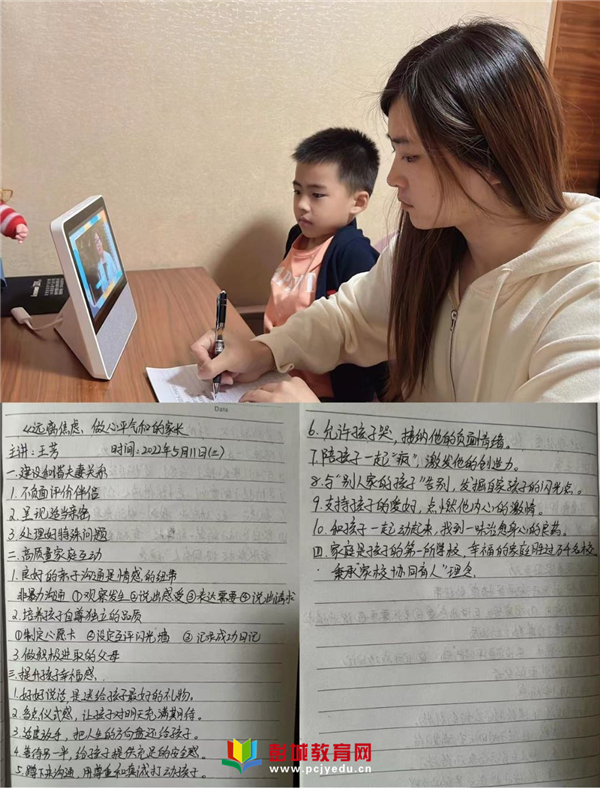 Date
《远离焦虑，做心平气和的家长
主讲：王芳 时间：2022年5月11日(三)
一.建设和谐夫妻关系
1.不负面评价伴侣
2.呈现适当亲密
3.处理好特殊问题
二.高质量家庭互动
1.良好的亲子沟通是情感的纽带
非暴力沟通 ①观察发生②说出感受③表达需要④说出请求
2.培养孩子自尊独立的品质
①制定心愿卡 ②设定互评闪光墙 ③记录成功日记
3.做积极进取的父母
三.提升孩子幸福感
1.好好说话，是送给孩子最好的礼物。
2.多点仪式感，让孩子对明天充满期待。
3.适度放手，把人生的方向盘还给孩子。
4.善待另一半，给孩子提供充足的安全感。
5.蹲下来沟通，用尊重和真诚打动孩子。
6.允许孩子哭，接纳他的负面情绪。
7.陪孩子一起"疯"，激发他的创造力。
8.与"别人家的孩子"告别，发掘自家孩子的闪光点。
9.支持孩子的爱好，点燃他内心的激情。
10.和孩子一起动起来，找到一味治愈身心的良药。
四.家庭是孩子的第一所学校，幸福的家庭胜过万千名校。
秉承"家校协同育人"理念.
彭城教育网
www.pcjyedu.cn